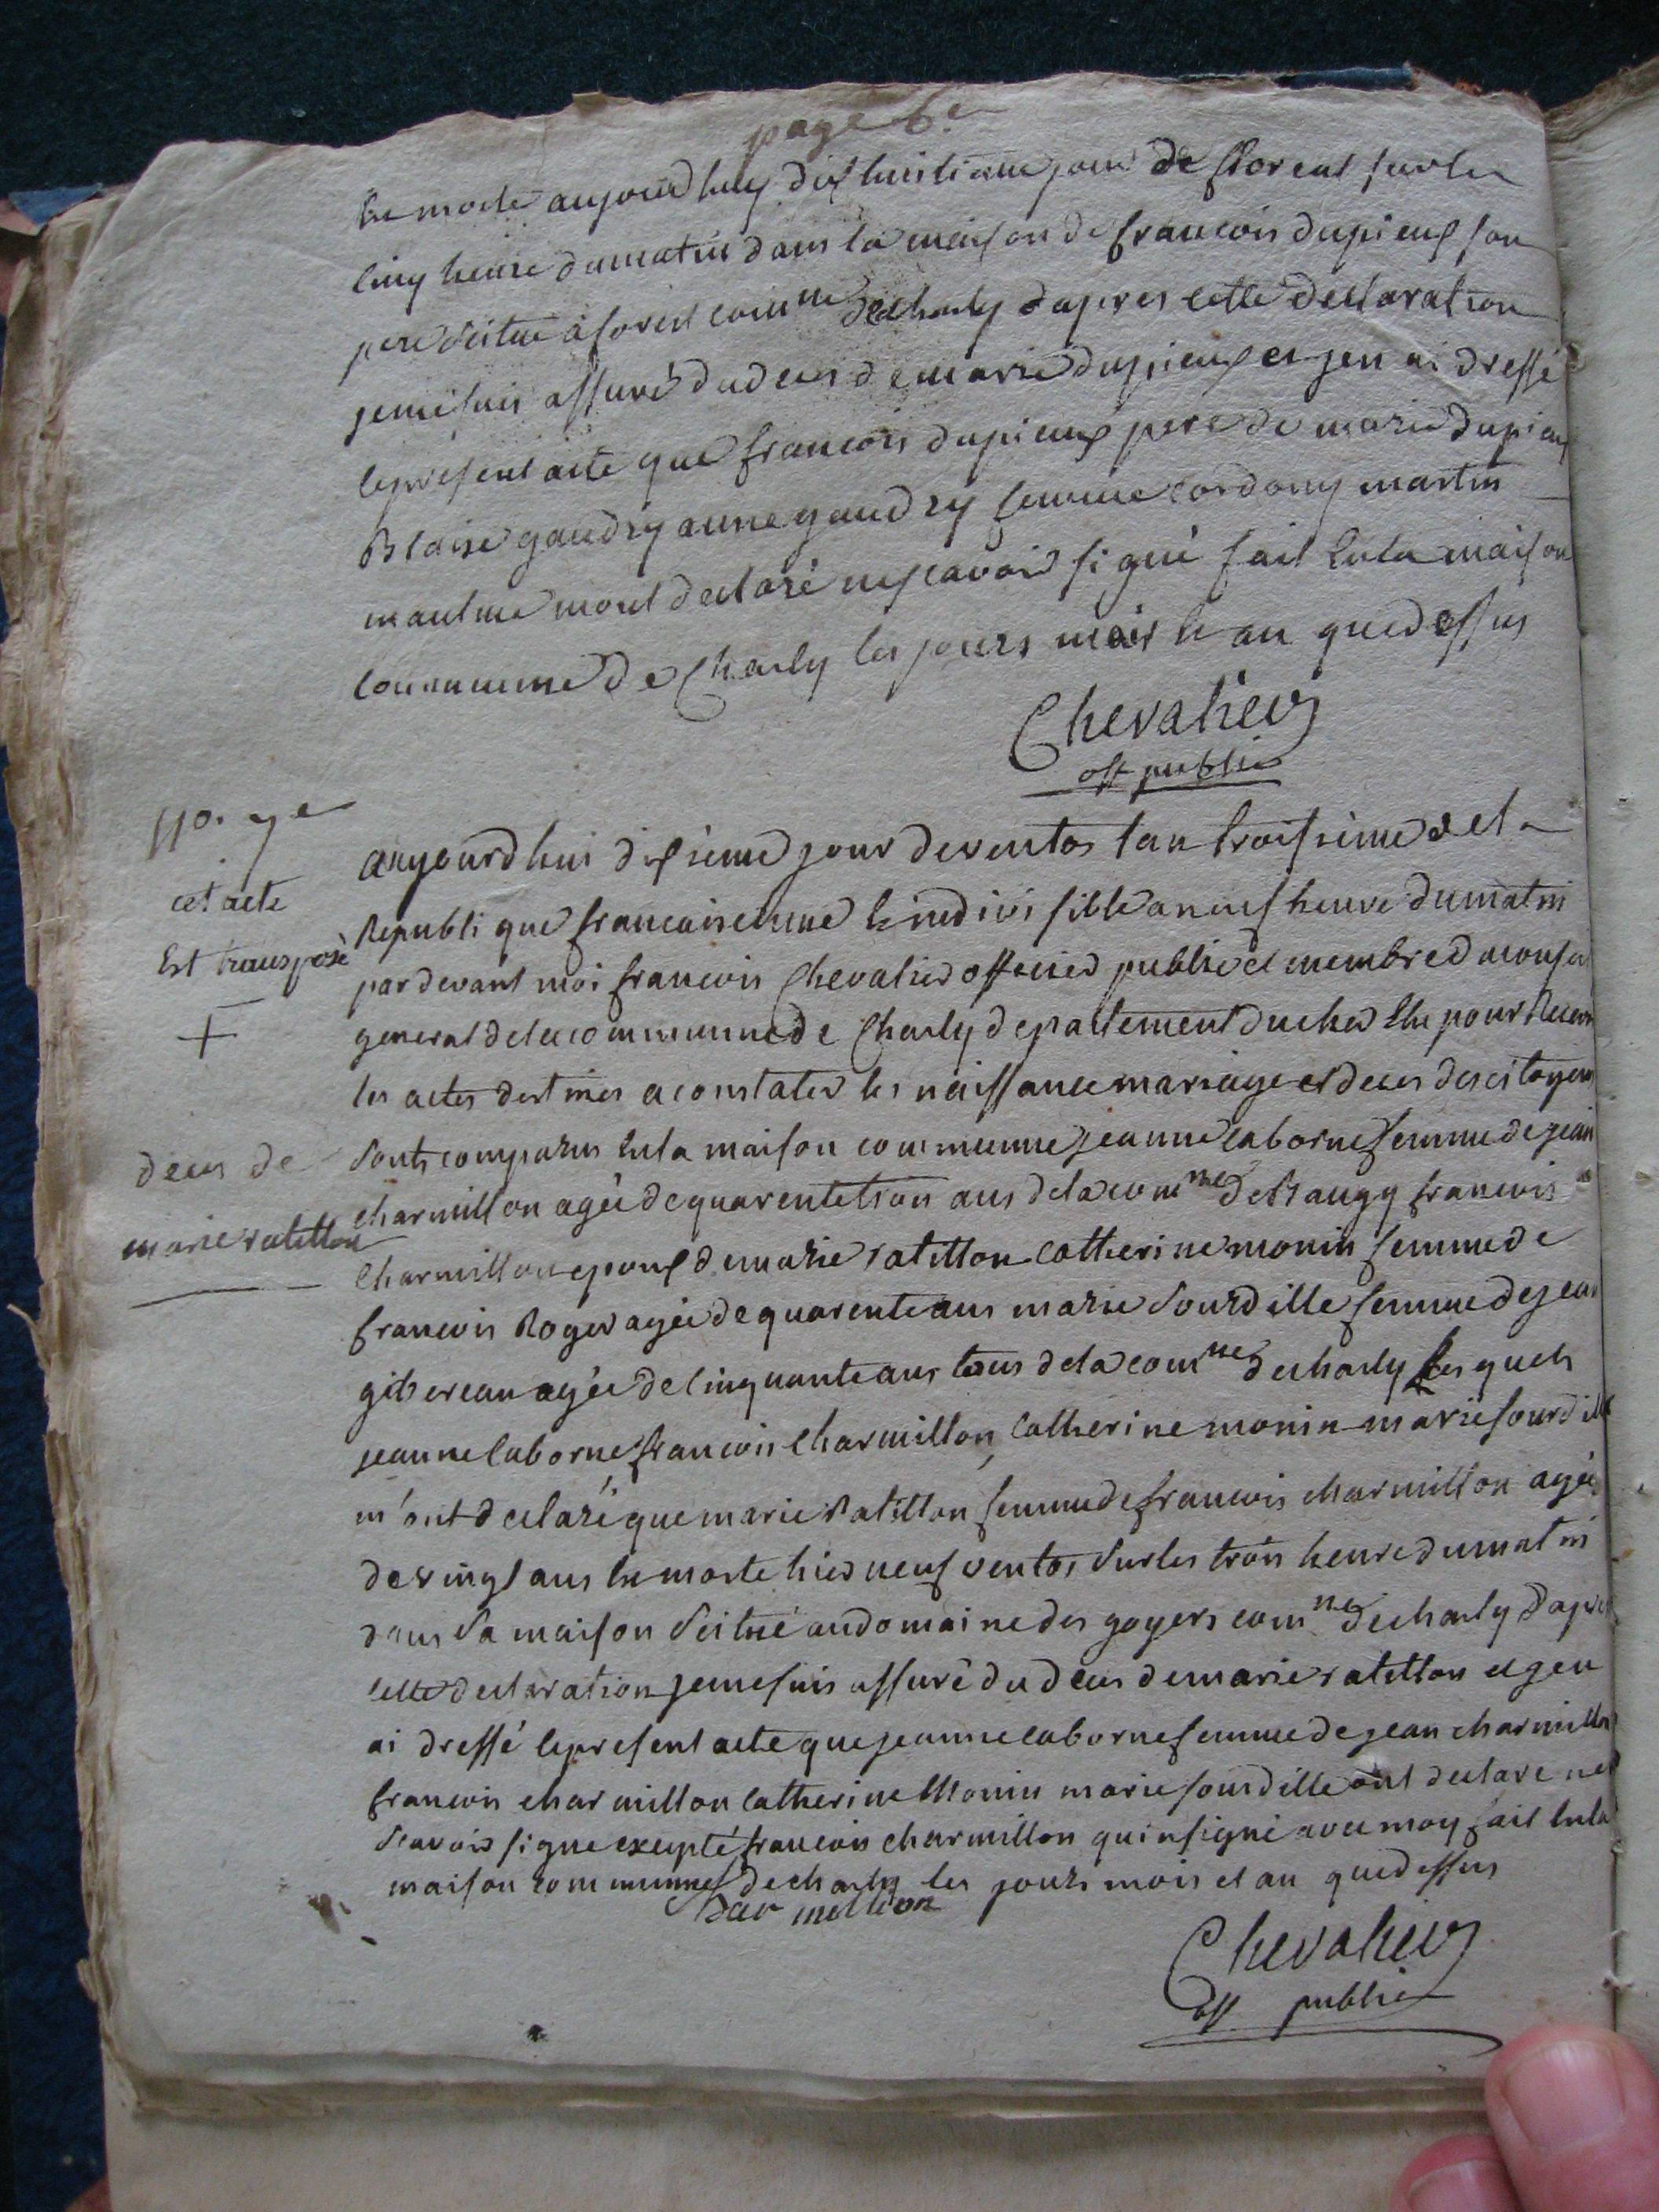 page 6e
Est morte aujourd huy dix huitieme jour de floreal sur les
cinq heure du matin dans la maison de francois dupieux son
pere scitué a forest comne de charly dapres cette declaration
je me suis assuré du deces de marie dupieux et jen ai dressé
le present acte que francois dupieux pere de marie dupieux
Blaise gaudry anne gaudry femme cordony martin
mont declaré ne scavoir signé fait En la maison
commune de Charly les jours mois et an que dessus
Chevalier
off public
aujourd hui dixieme jour de ventos lan troisieme de la
Republique francaise une et indivisible a neuf heure du matin
cet acte
pardevant moi francois Chevalier officier public et membre du conseil
Est transposé
general de la commune de Charly departement du cher Elu pour Recevoir
+
les actes destinés a constater les naissance mariage et deces des citoyens
deces de
sont comparus En la maison commune jeanne laborne femme de jean
charmillon agée de quarente trois ans de la comne de Baugy francois
marie ratillon
Charmillon epoux de marie ratillon catherine monin femme de
francois Roger agée de quarente ans marie Sourdille femme de jean
gibereau agée de cinquante ans tous de la comne de charly Les quels
jeanne laborne francois charmillon, Catherine monin marie sourdille
m'ont declaré que marie Ratillon femme de francois charmillon agée
de vingt ans Est morte hier neuf ventos sur les trois heure du matin
dans sa maison scitué au domaine des goyers comne de charly d'apres
cette declaration je me suis assuré du deces de marie ratillon et jen
ai dressé le present acte que jeanne laborne femme de jean charmillon
francois charmillon catherine Monin marie sourdille ont declare ne
scavoir signe excepté francois charmillon qui a signé avec moy fait En la
maison commune de charly les jours mois et an que dessus
Chevalier
off public